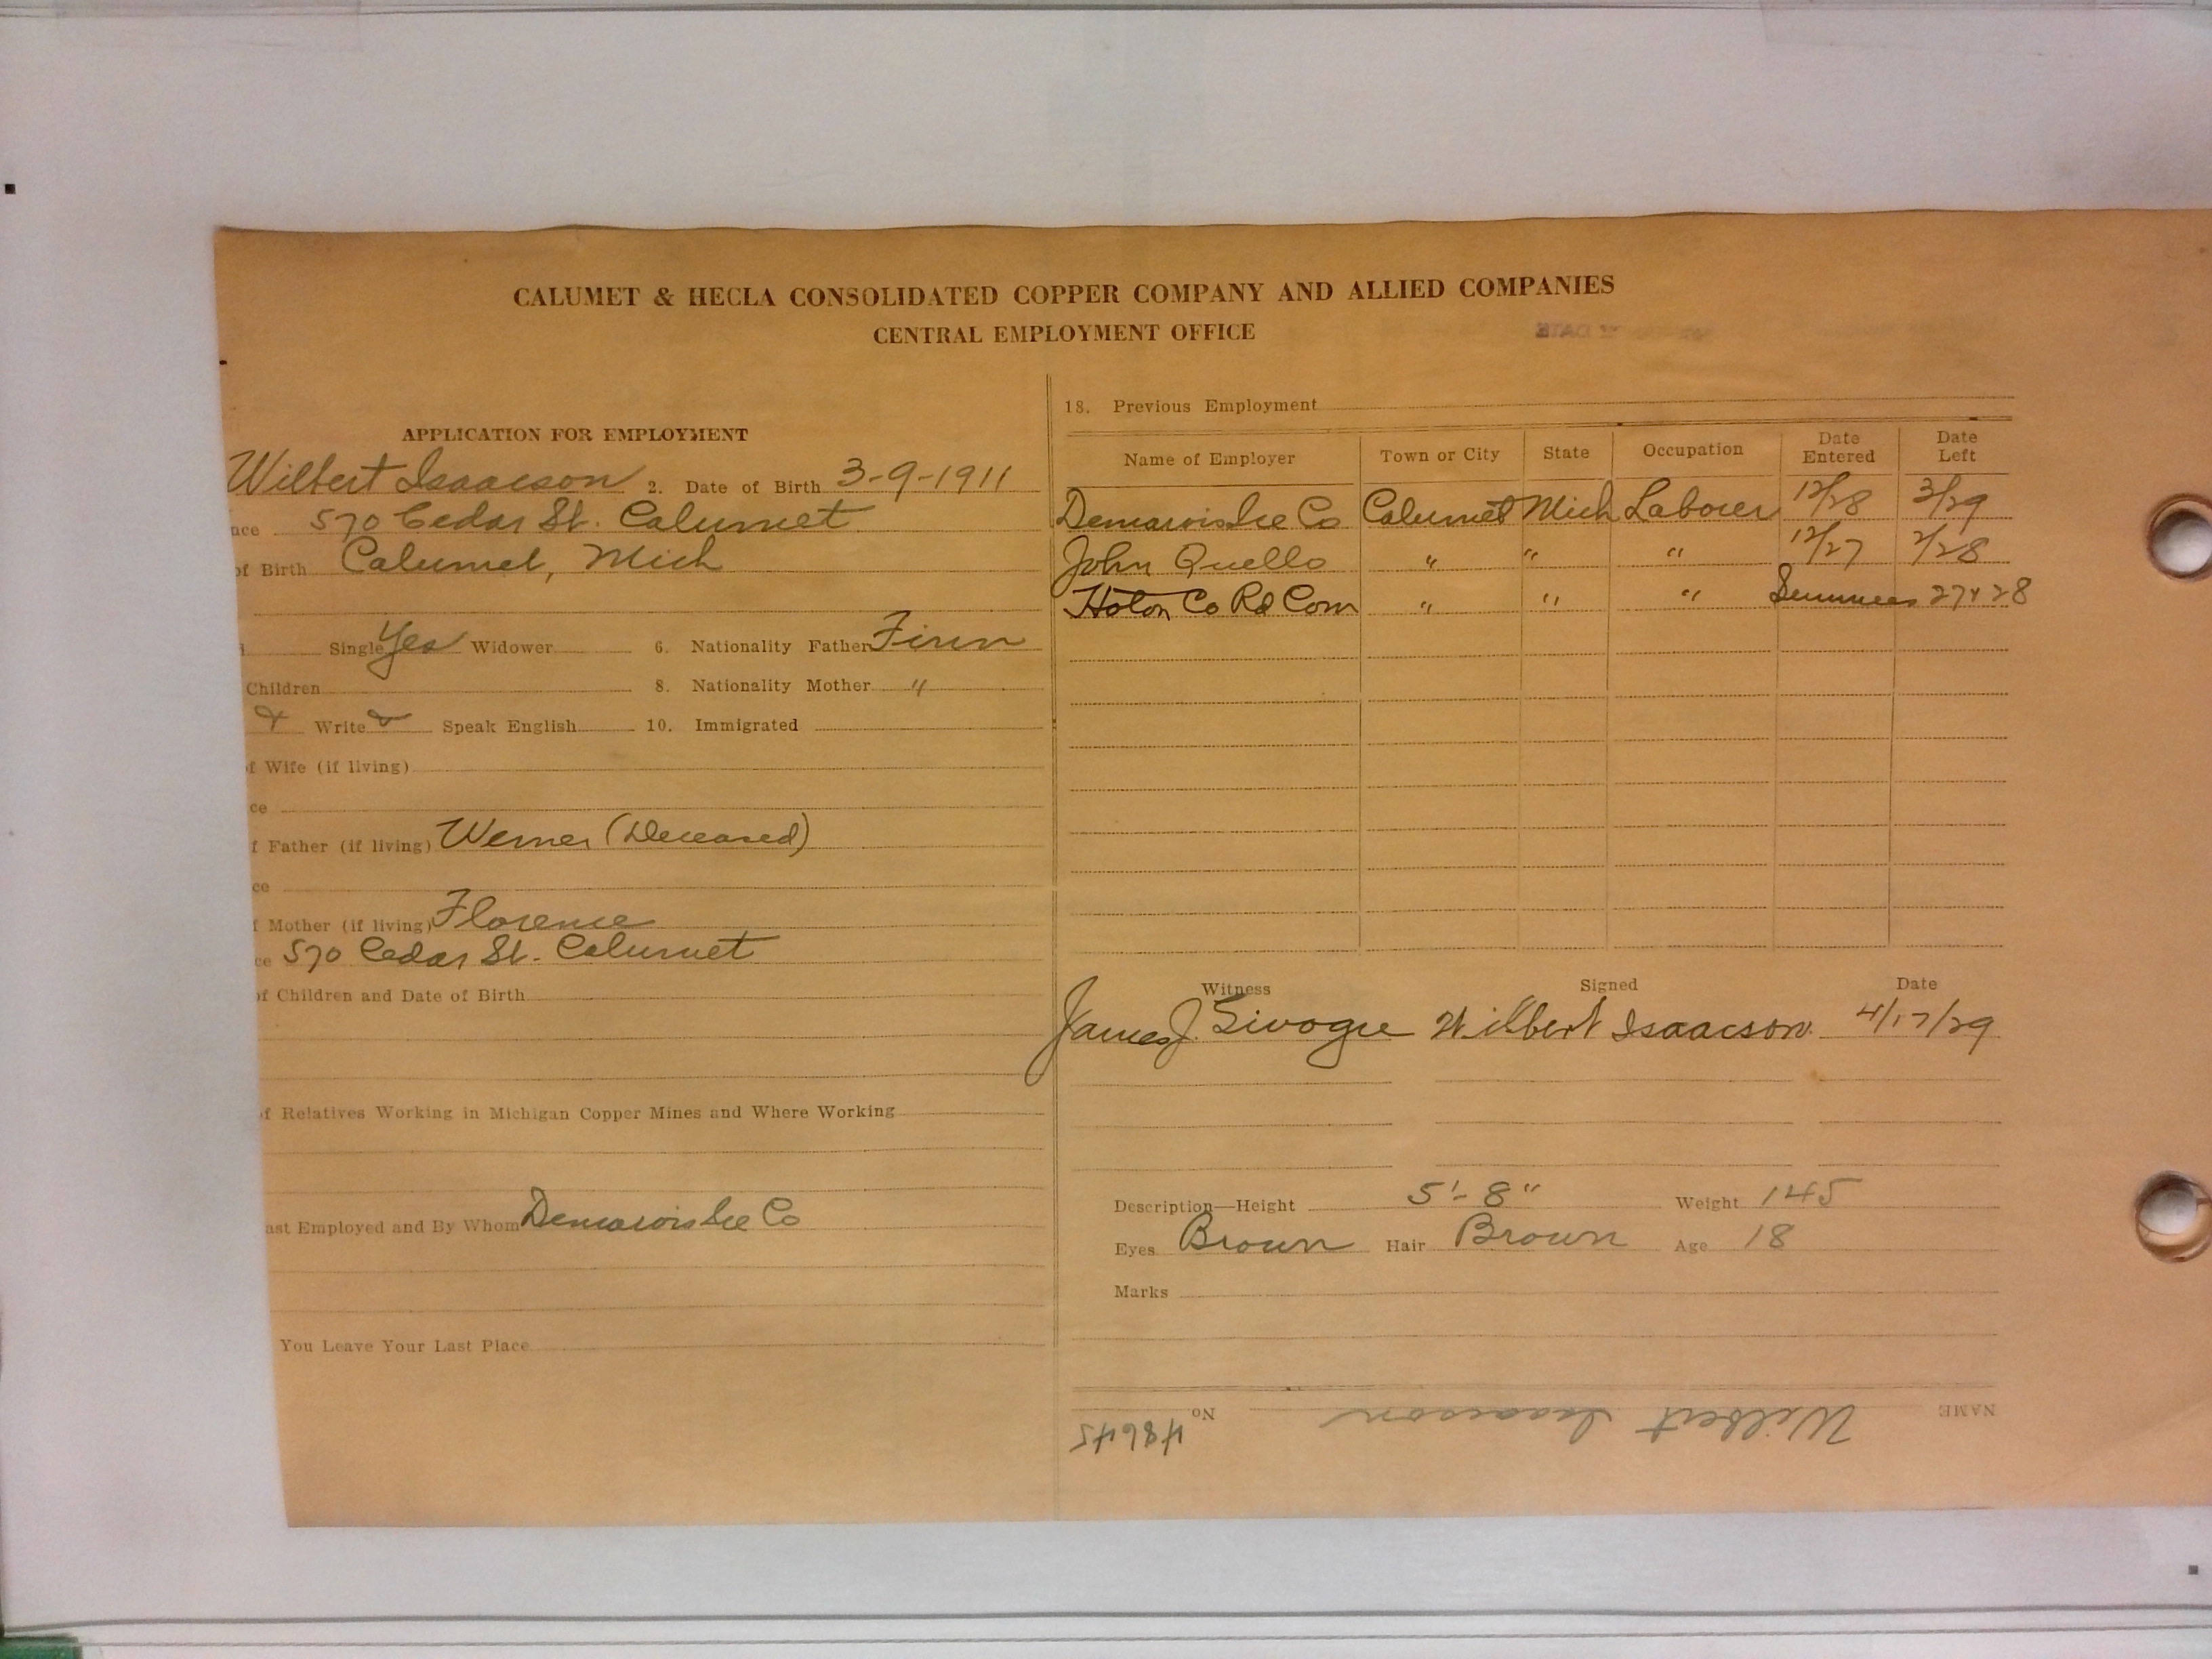 CALUMET & HECLA CONSOLIDATED COPPER COMPANY AND ALLIED COMPANIES
CENTRAL EMPLOYMENT OFFICE
DATE
APPLICATION FOR EMPLOYMENT
Wilbert Isaacson 2. Date of Birth 3-9-1911
nce 570 Cedar St. Calumet
of Birth Calumet, Mich
Single Yes Widower 6. Nationality Father Finn
Children 8. Nationality Mother "
Write Speak English 10. Immigrated
f Wife (if living)
ce
f Father (if living) Werner (Deceased)
ce
f Mother (if living) Florence
ce 570 Cedar St. Calumet
of Children and Date of Birth
of Relatives Working in Michigan Copper Mines and Where Working
ast Employed and By Whom Demarois Ice Co
You Leave Your Last Place
18. Previous Employment
Name of Employer Town or City State Occupation Date Entered Date Left
Demarois Ice Co Calumet Mich Laborer 12/28 3/29
John Quello " " " 12/27 2/28
Hoton Co Rd Com " " " Summers 27 & 28
Witness Signed Date
James J. Wilbert Isaacson. 4/17/29
Description—Height 5'-8" Weight 145
Eyes Brown Hair Brown Age 18
Marks
NAME Wilbert Isaacson No 48645